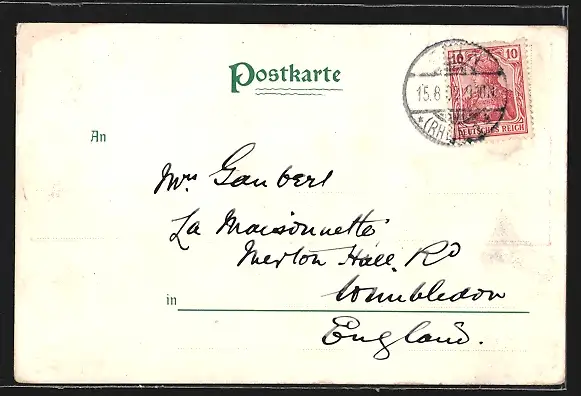 Postkarte
10 10
15.8
(RH
DEUTSCHES REICH
An
Mrs Gaubert
La Maisonnette
Merton Hall Rd
in Wimbledon
England.